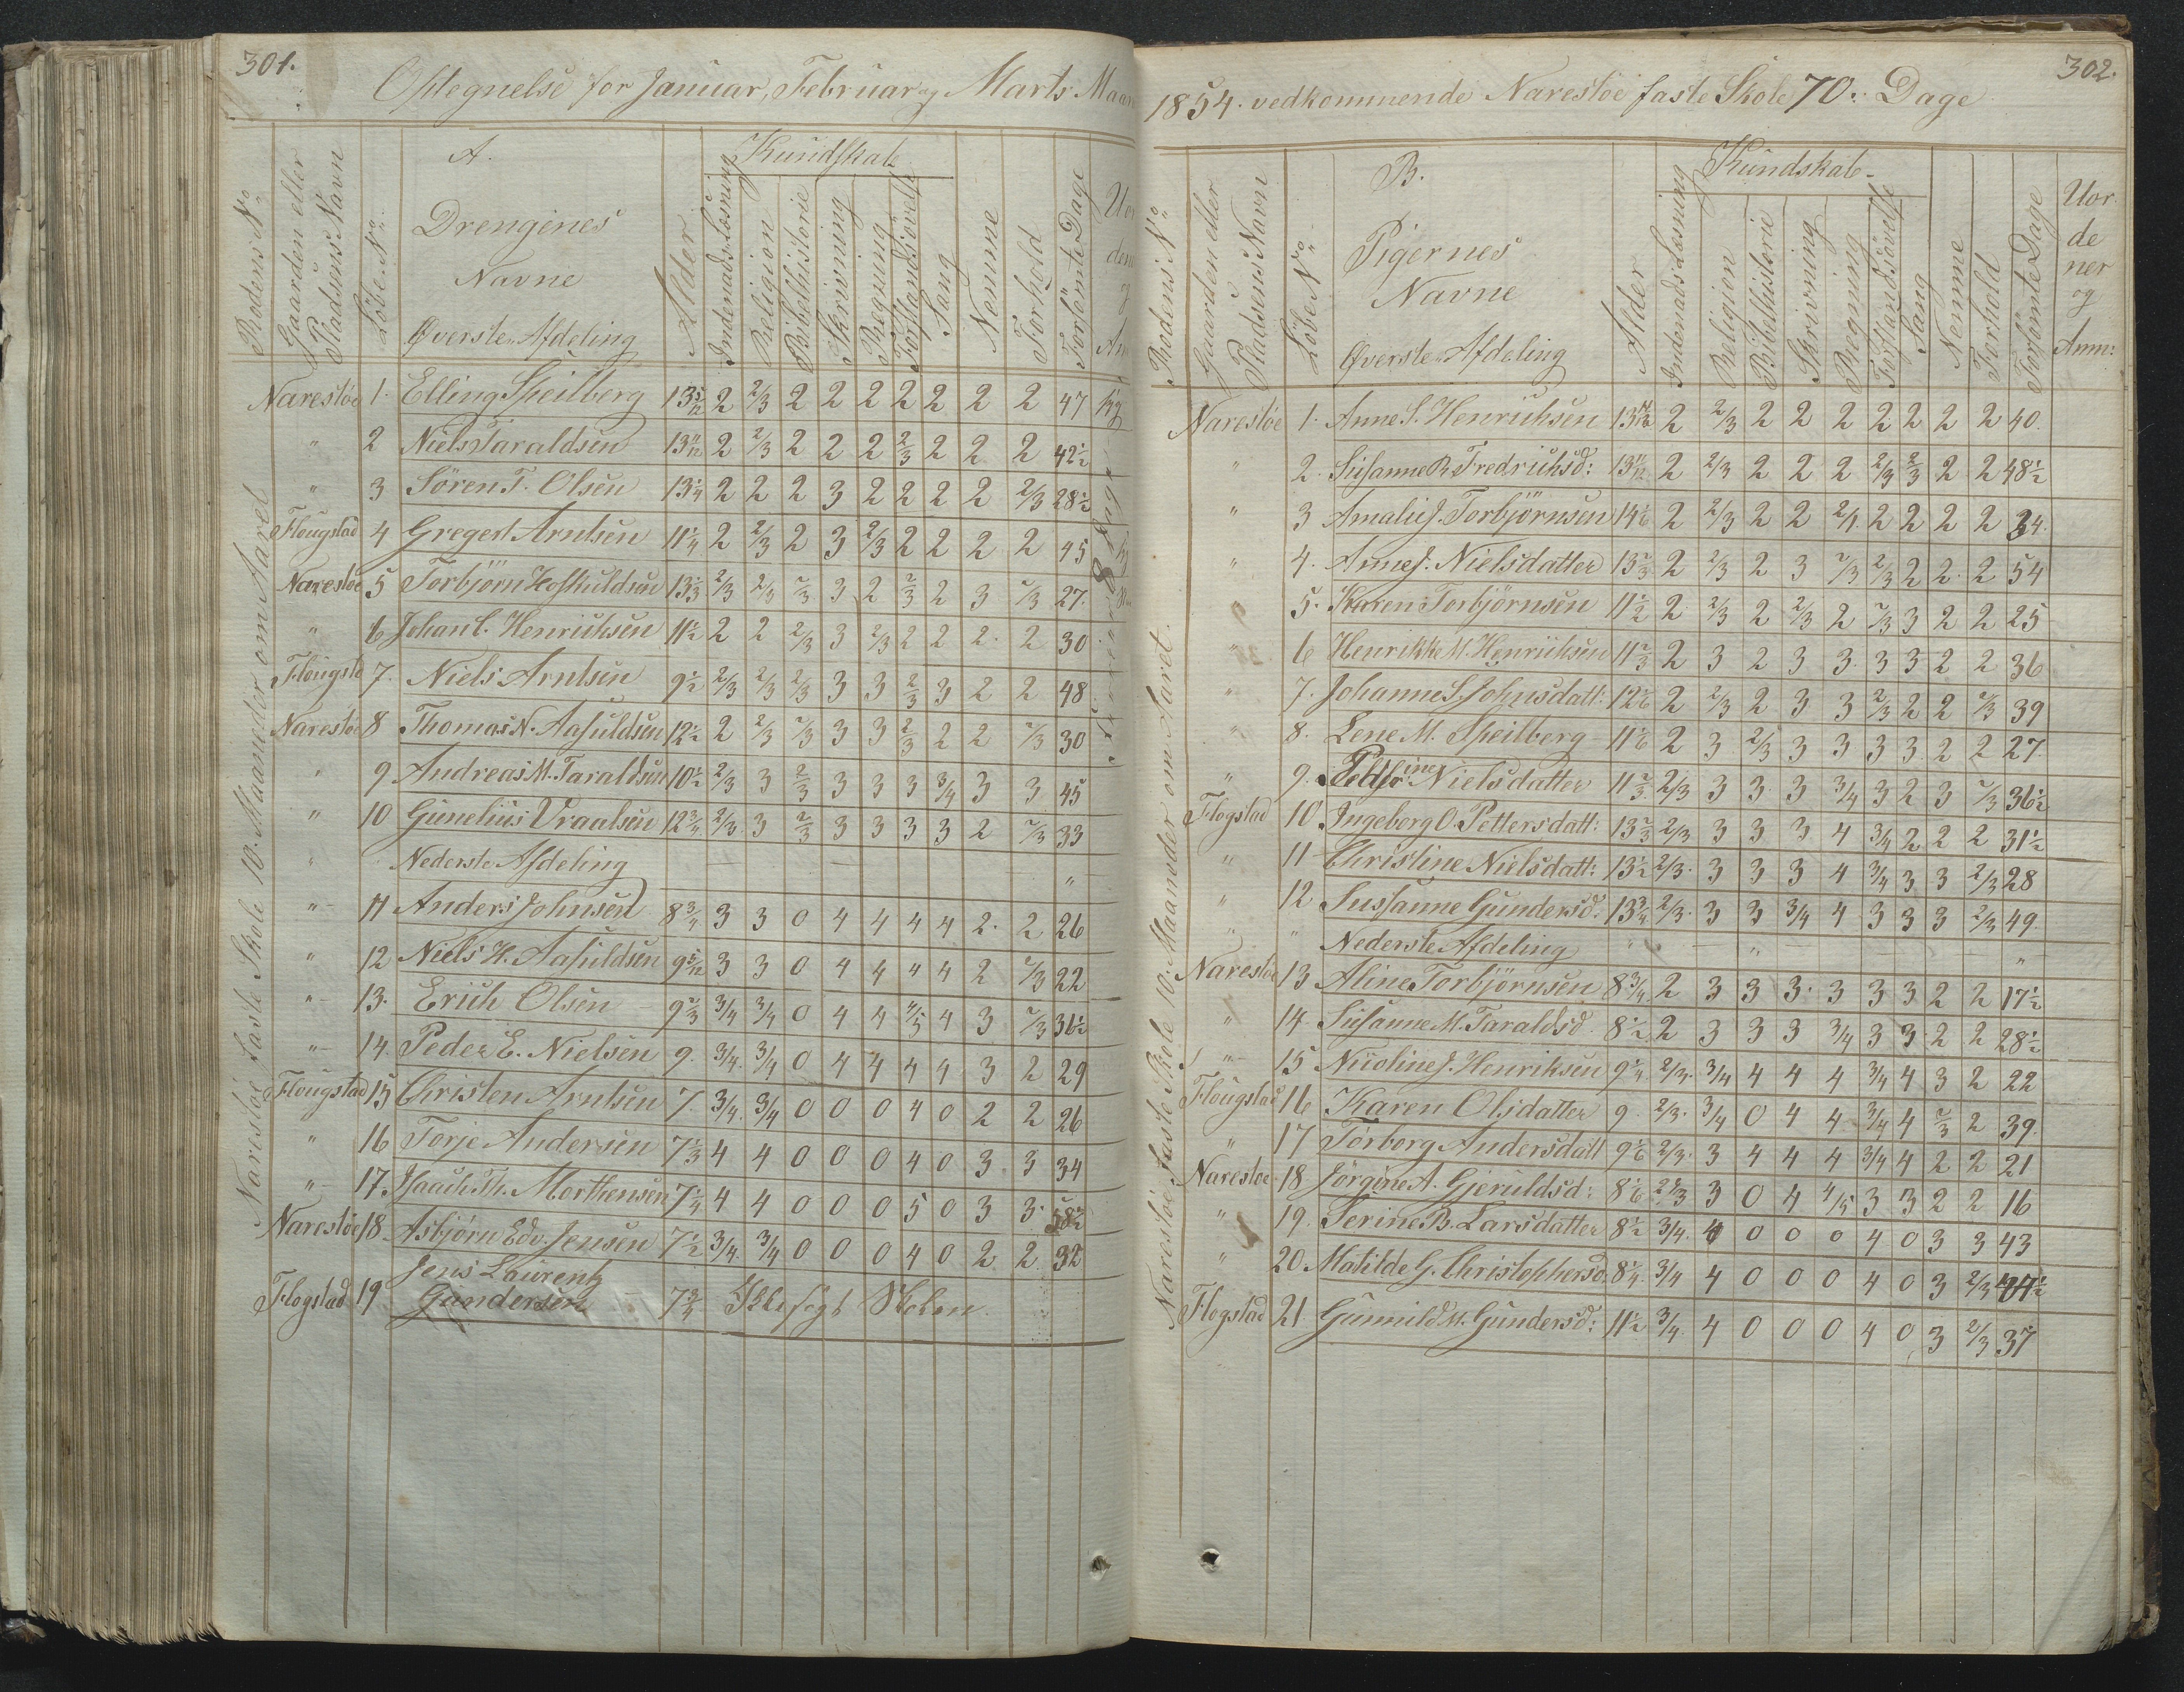 301.
Optegnelse for Januar, Februar og Marts Maan
Rodens No
Gaarden eller Pladsens Navn
Löbe No
A.
Drengines
Navne
Øverste Afdeling
Alder
Kundskab
Indenads Læsning
Religion
Bibelhistorie
Skrivning
Regning
Forstandsövelse
Sang
Nemme
Forhold
Forsömte Dage
Naresto faste Skole 10. Maaneder om Aaret
Narestöe 1. Elling Speilberg 13 5/12 2 2/3 2 2 2 2 2 2 2 47
" 2 Niels Taraldsen 13 11/12 2 2/3 2 2 2 2/3 2 2 2 42 1/2
" 3 Sören T. Olsen 13 1/4 2 2 2 3 2 2 2 2 2/3 28 1/2
Flougstad 4 Gregert Arntsen 11 1/4 2 2/3 2 3 2/3 2 2 2 2 45
Narestoe 5 Torbjörn Hoskuldsen 13 1/3 2/3 2/3 2/3 3 2 2/3 2 3 2/3 27.
" 6 Johan C. Henriksen 11 1/2 2 2 2/3 3 2/3 2 2 2. 2 30
Flougstd 7. Niels Arntsen 9 1/2 2/3 2/3 2/3 3 3 2/3 3 2 2 48
Narestöe 8 Thomas N. Aasuldsen 12 1/2 2 2/3 2/3 3 3 2/3 2 2 2/3 30
" 9 Andreas M. Taraldsen 10 1/2 2/3 3 2/3 3 3 3 3/4 3 3 45
" 10 Gunelius Vraalsen 12 3/4 2/3 3 2/3 3 3 3 3 2 2/3 33
" Nederste Afdeling "
" 11 Anders Johnsen 8 3/4 3 3 0 4 4 4 4 2. 2 26
" 12 Niels H. Aasuldsen 9 5/12 3 3 0 4 4 4 4 2 2/3 22
" 13. Erich Olsen 9 2/3 3/4 3/4 0 4 4 4/5 4 3 2/3 31 1/2
" 14. Peder E. Nielsen 9. 3/4 3/4 0 4 4 4 4 3 2 29
Flougstad 15 Christen Arntsen 7 3/4 3/4 0 0 0 4 0 2 2 26
" 16 Torje Andersen 7 1/3 4 4 0 0 0 4 0 3 3 34
" 17. Isach Th. Morthensen 7 1/4 4 4 0 0 0 5 0 3 3 58 1/2
Narestöe 18 Asbjörn Edv. Jensen 7 1/2 3/4 3/4 0 0 0 4 0 2 2 32
Flogstad 19 Jens Laurentz
Gundersen 7 3/4 Ikke søgt Skolen.
302.
1854. vedkommende Narestöe faste Skole 70. Dage
Rodens No
Gaarden eller Pladsens Navn
Löbe No
B.
Pigernes
Navne
Øverste Afdeling
Alder
Kundskab
Indenads Læsning
Religion
Bibelhistorie
Skrivning
Regning
Forstandsövelse
Sang
Nemme
Forhold
Forsömte Dage
Uor
de
ner
og
Anm:
Narestöe faste Skole 10. Maaneder om Aaret.
Narestöe 1. Anne S. Henriksen 13 2 2/3 2 2 2 2 2 2 2 40.
" 2. Susanne B. Fredriksd: 13 11/12 2 2/3 2 2 2 2/3 2/3 2 2 48 1/2
" 3 Amalie J. Torbjörnsen 14 1/6 2 2/3 2 2 2/ 2 2 2 2 34.
" 4. Anne J. Nielsdatter 13 2/3 2 2/3 2 3 2/3 2/3 2 2. 2 54
5. Karen Torbjörnsen 11 1/2 2 2/3 2 2/3 2 2/3 3 2 2 25
" 6 Henrikke M. Henriksen 11 2/3 2 3 2 3 3. 3 3 2 2 36
" 7. Johanne S. Johnsdatt: 12 1/6 2 2/3 2 3 3 2/3 2 2 2/3 39
" 8. Lene M. Speilberg 11 1/6 2 3 2/3 3 3 3 3. 2 2 27.
" 9. ine Nielsdatter 11 2/3 2/3 3 3 3 3/4 3 2 3 2/3 36 1/2
Flogstad 10 Ingeborg O. Pettersdatt: 13 2/3 2/3 3 3 3 4 3/4 2 2 2 31 1/2
" 11 Christine Nielsdatt: 13 1/2 2/3 3 3 3 4 3/4 3 3 2/3 28
" 12 Sussanne Gundersd: 13 3/4 2/3 3 3 3/4 4 3 3 3 2/3 49.
" " Nederste Afdeling " " "
Narestöe 13 Aline Torbjörnsen 8 3/4 2 3 3 3. 3 3 3 2 2 17 1/2
" 14 Susanne M. Taraldsd. 8 1/2 2 3 3 3 3/4 3 3 2 2 28 1/2
" 15 Nicoline J. Henriksen 9 1/4 2/3 3/4 4 4 4 3/4 4 3 2 22
Flougstad 16 Karen Olsdatter 9. 2/3 3/4 0 4 4 3/4 4 2/3 2 39.
" 17 Torborg Andersdatt 9 1/6 2/3 3 4 4 4 3/4 4 2 2 21
Narestoe 18 Jörgine A. Gjeruldsd: 8 1/6 2/3 3 0 4 4/5 3 3 2 2 16
" 19. Serine B. Larsdatter 8 1/2 3/4 4 0 0 0 4 0 3 3 43
" 20. Matilde G. Christophersd. 8 1/4 3/4 4 0 0 0 4 0 3 2/3 44 1/2
Flogstad 21. Gunnild M. Gundersd: 11 1/2 3/4 4 0 0 0 4 0 3 2/3 37